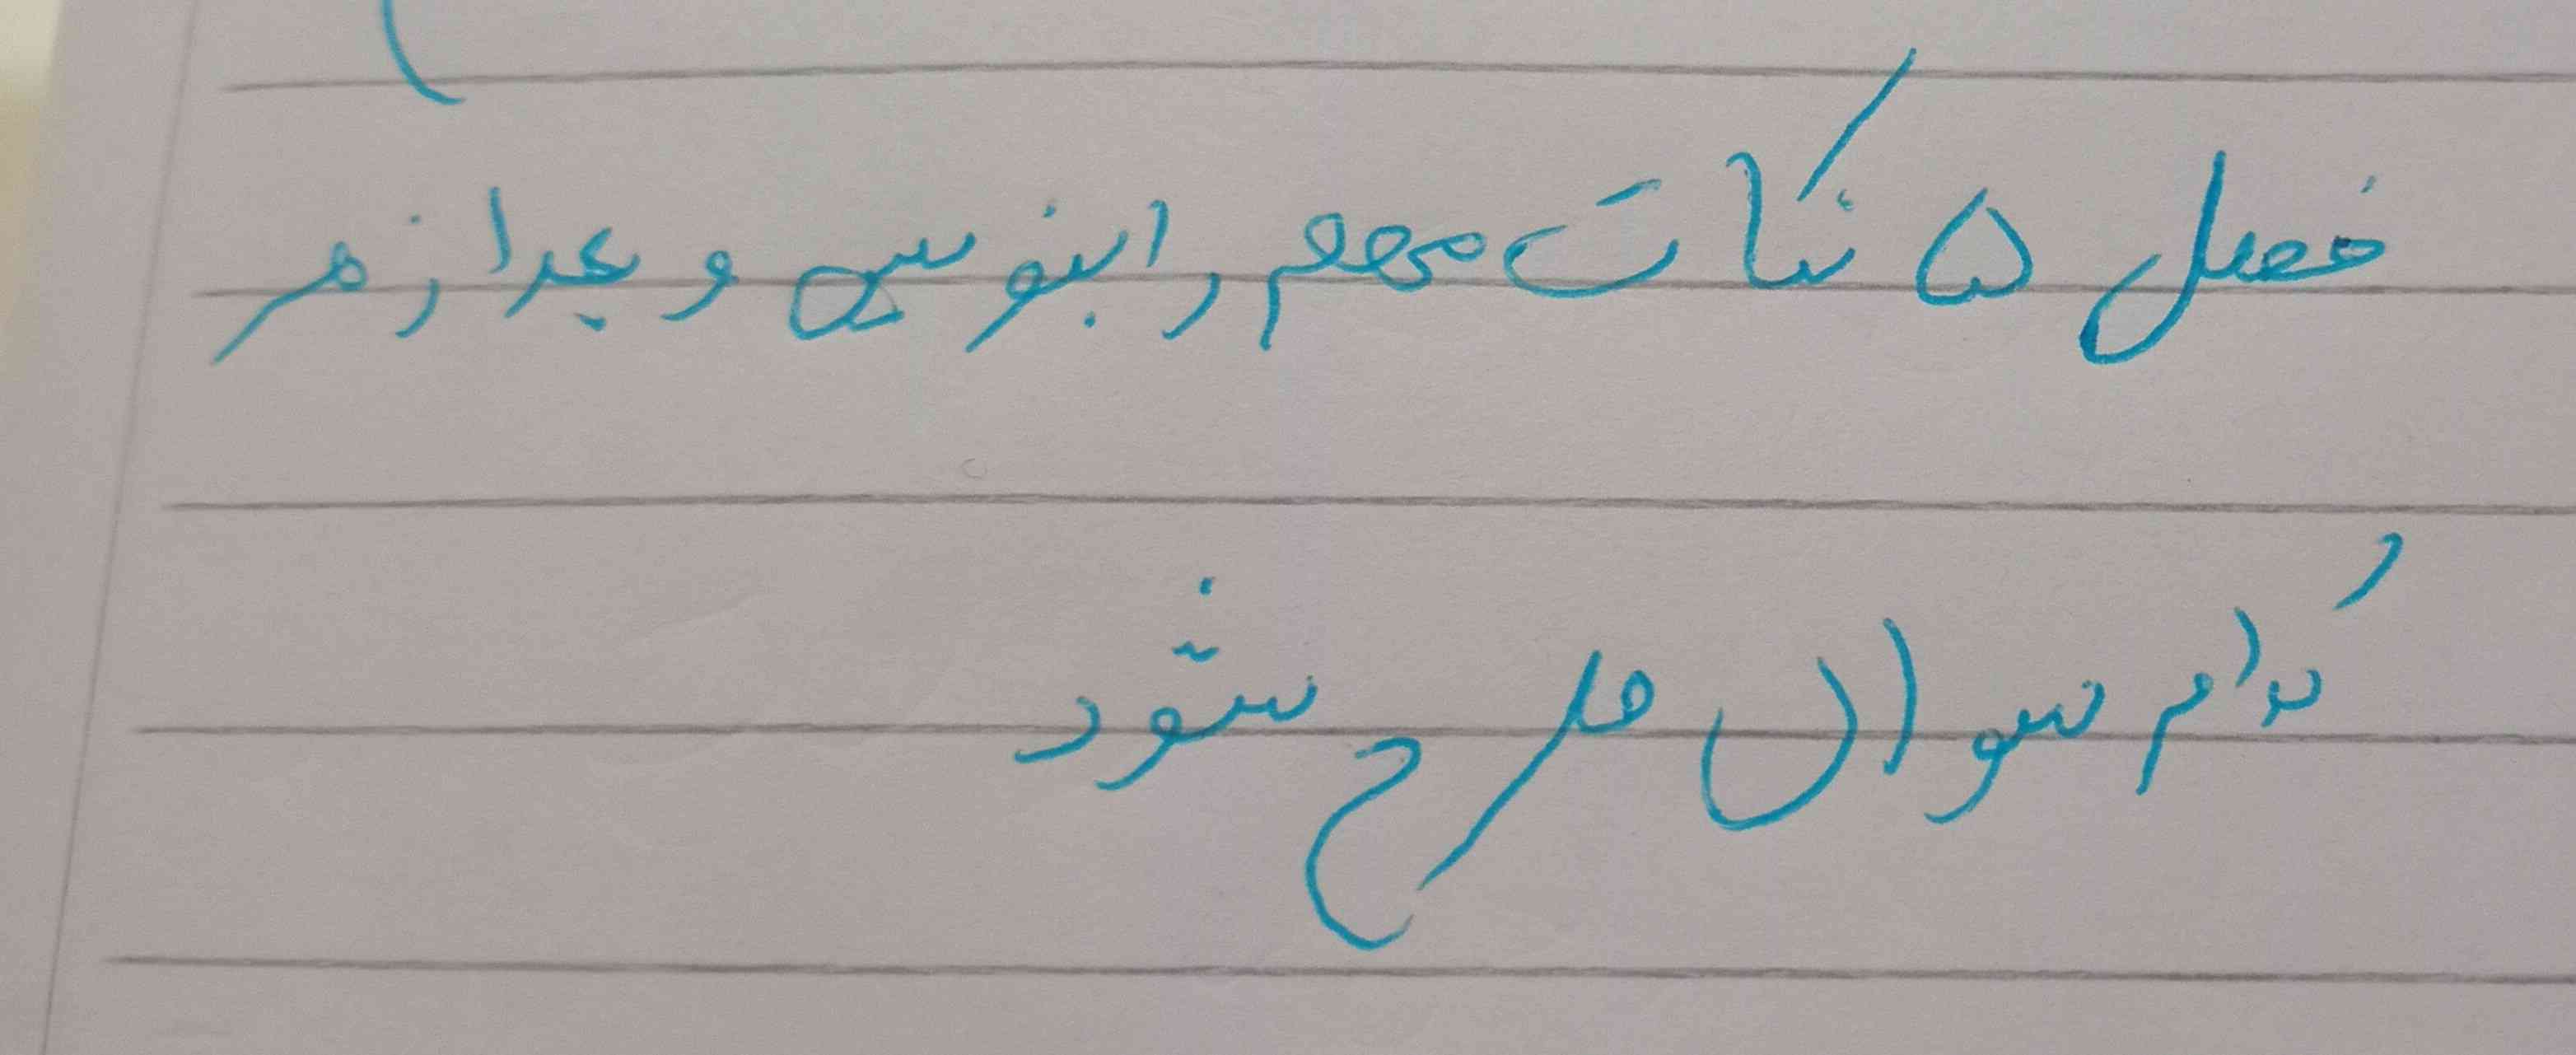 فصل ۵ نکات مهم را بنویس و بعد از هر
کدام سوال طرح شود